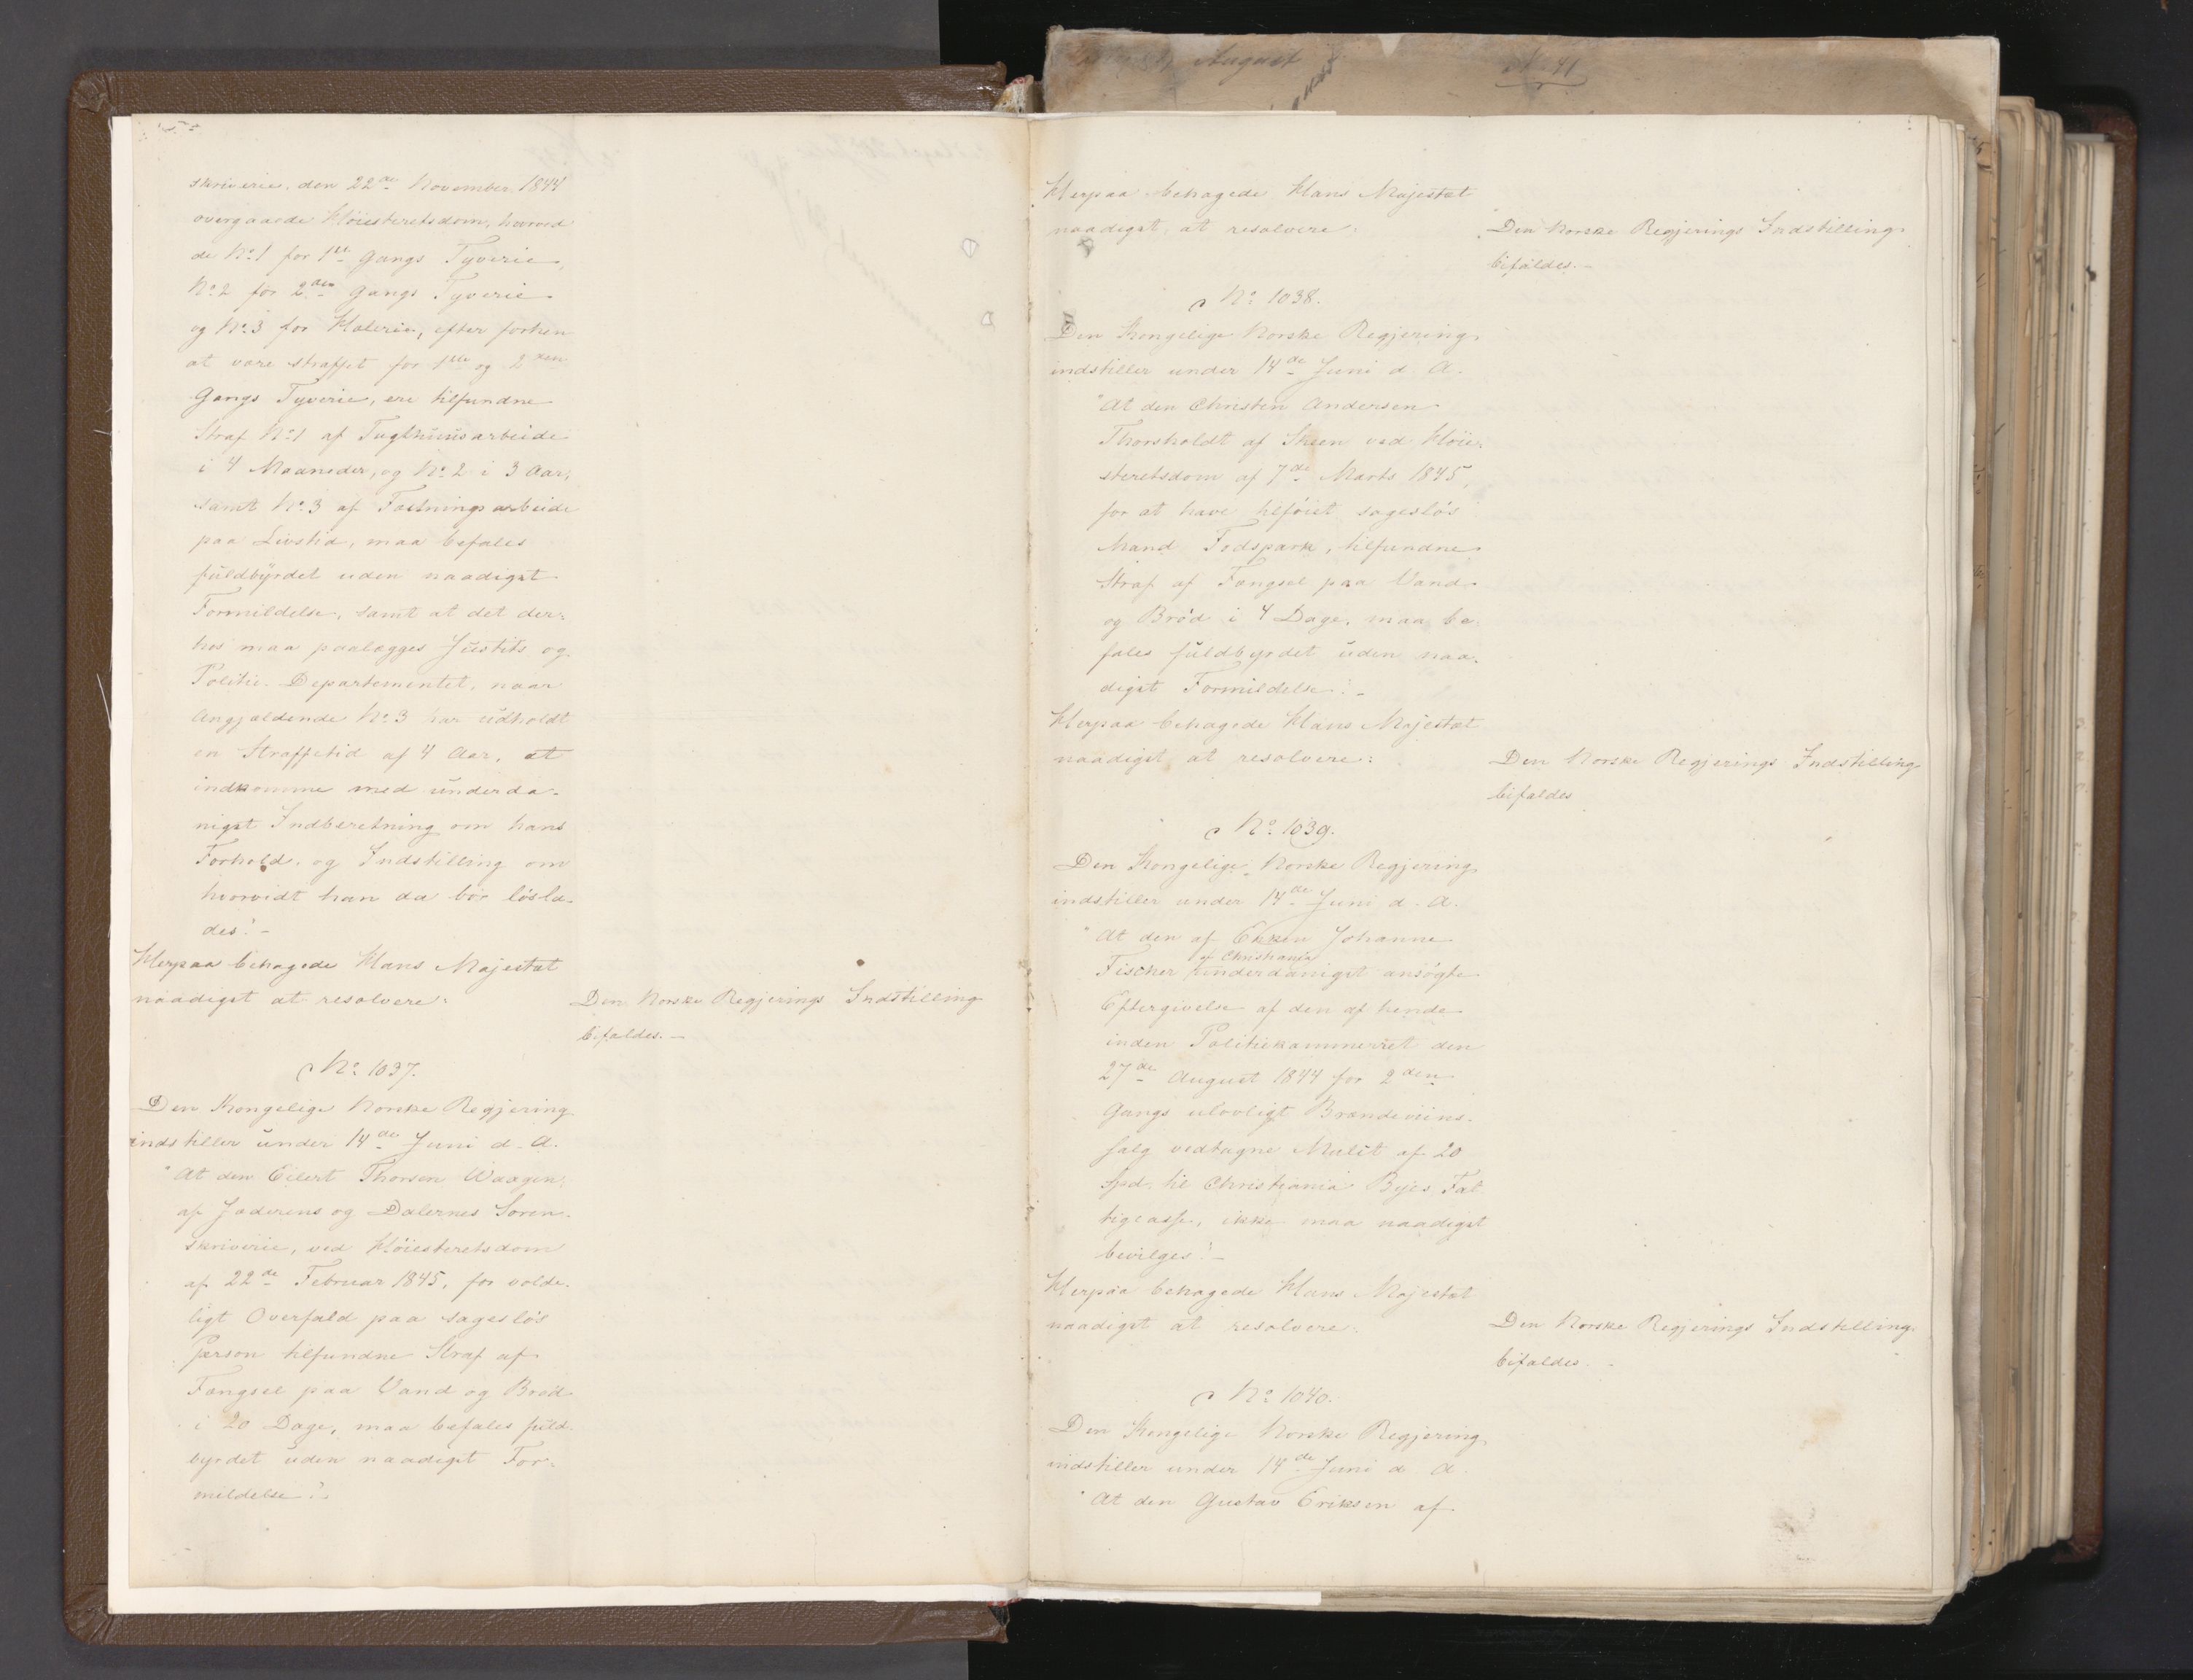 skriverie, den 22de November 1844
overgaaede Høiesteretsdom, hvorved
de No 1 for 1ste Gangs Tyverie,
No 2 for 2den Gangs Tyverie
og No 3 for Hælerie, efter forhen
at være straffet for 1ste og 2den
Gangs Tyverie, ere tilfundne
Straf No 1 af Tugthuusarbeide
i 4 Maaneder, og No 2 i 3 Aar,
samt No 3 af Fæstningsarbeide
paa Livstid, maa befales
fuldbyrdet uden naadigst
Formildelse, samt at det der-
hos maa paalægges Justits og
Politie-Departementet, naar
Angjældende No 3 har udholdt
en Straffetid af 4 Aar, at
indkomme med underda-
nigst Indberetning om hans
Forhold, og Indstilling om
hvorvidt han da bør løsla-
des."-
Herpaa behagede Hans Majestæt
naadigst at resolvere:
Den Norske Regjerings Indstilling
bifaldes.-
No 1037.
Den Kongelige Norske Regjering
indstiller under 14de Juni d. A.
"At den Eilert Thorsen Waagen,
af Jæderens og Dalernes Soren-
skriverie, ved Høiesteretsdom
af 22de Februar 1845, for volde-
ligt Overfald paa sagesløs
Person tilfundne Straf af
Fængsel paa Vand og Brød
i 20 Dage, maa befales fuld-
byrdet uden naadigst For-
mildelse."
Herpaa behagede Hans Majestæt
naadigst at resolvere:
Den Norske Regjerings Indstilling
bifaldes.-
No 1038.
Den Kongelige Norske Regjering
indstiller under 14de Juni d. A.
"At den Christen Andersen
Thorsholdt af Skeen ved Høie-
steretsdom af 7de Marts 1845,
for at have tilføiet sagesløs
Mand Fodspark, tilfundne
Straf af Fængsel paa Vand
og Brød i 4 Dage, maa be-
fales fuldbyrdet uden naa-
digst Formildelse."-
Herpaa behagede Hans Majestæt
naadigst at resolvere:
Den Norske Regjerings Indstilling
bifaldes
No 1039.
Den Kongelige Norske Regjering
indstiller under 14de Juni d. A.
"At den af Enken Johanne
af Christiania
Fischer underdanigst ansøgte
Eftergivelse af den af hende
inden Politiekammeret den
27de August 1844 for 2den
Gangs ulovligt Brændeviins-
salg vedtagne Mulct af 20
Spd. til Christiania Byes Fat-
tigcasse, ikke maa naadigst
bevilges."-
Herpaa behagede Hans Majestæt
naadigst at resolvere:
Den Norske Regjerings Indstilling
bifaldes.-
No 1040.
Den Kongelige Norske Regjering
indstiller under 14de Juni d. A.
"At den Gustav Eriksen af
August
No 41